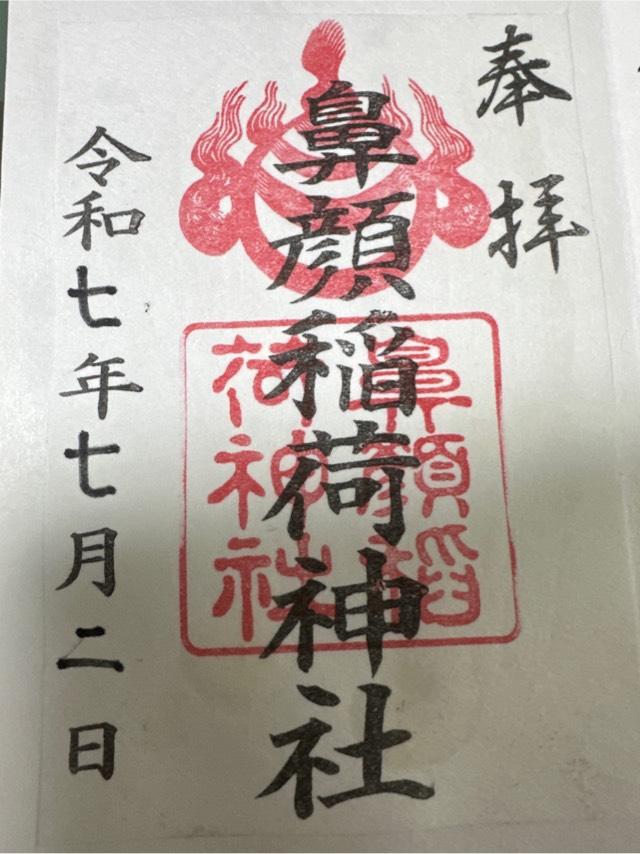 奉拝
鼻顔稲荷神社
鼻顔稲
荷神社
令和七年七月二日